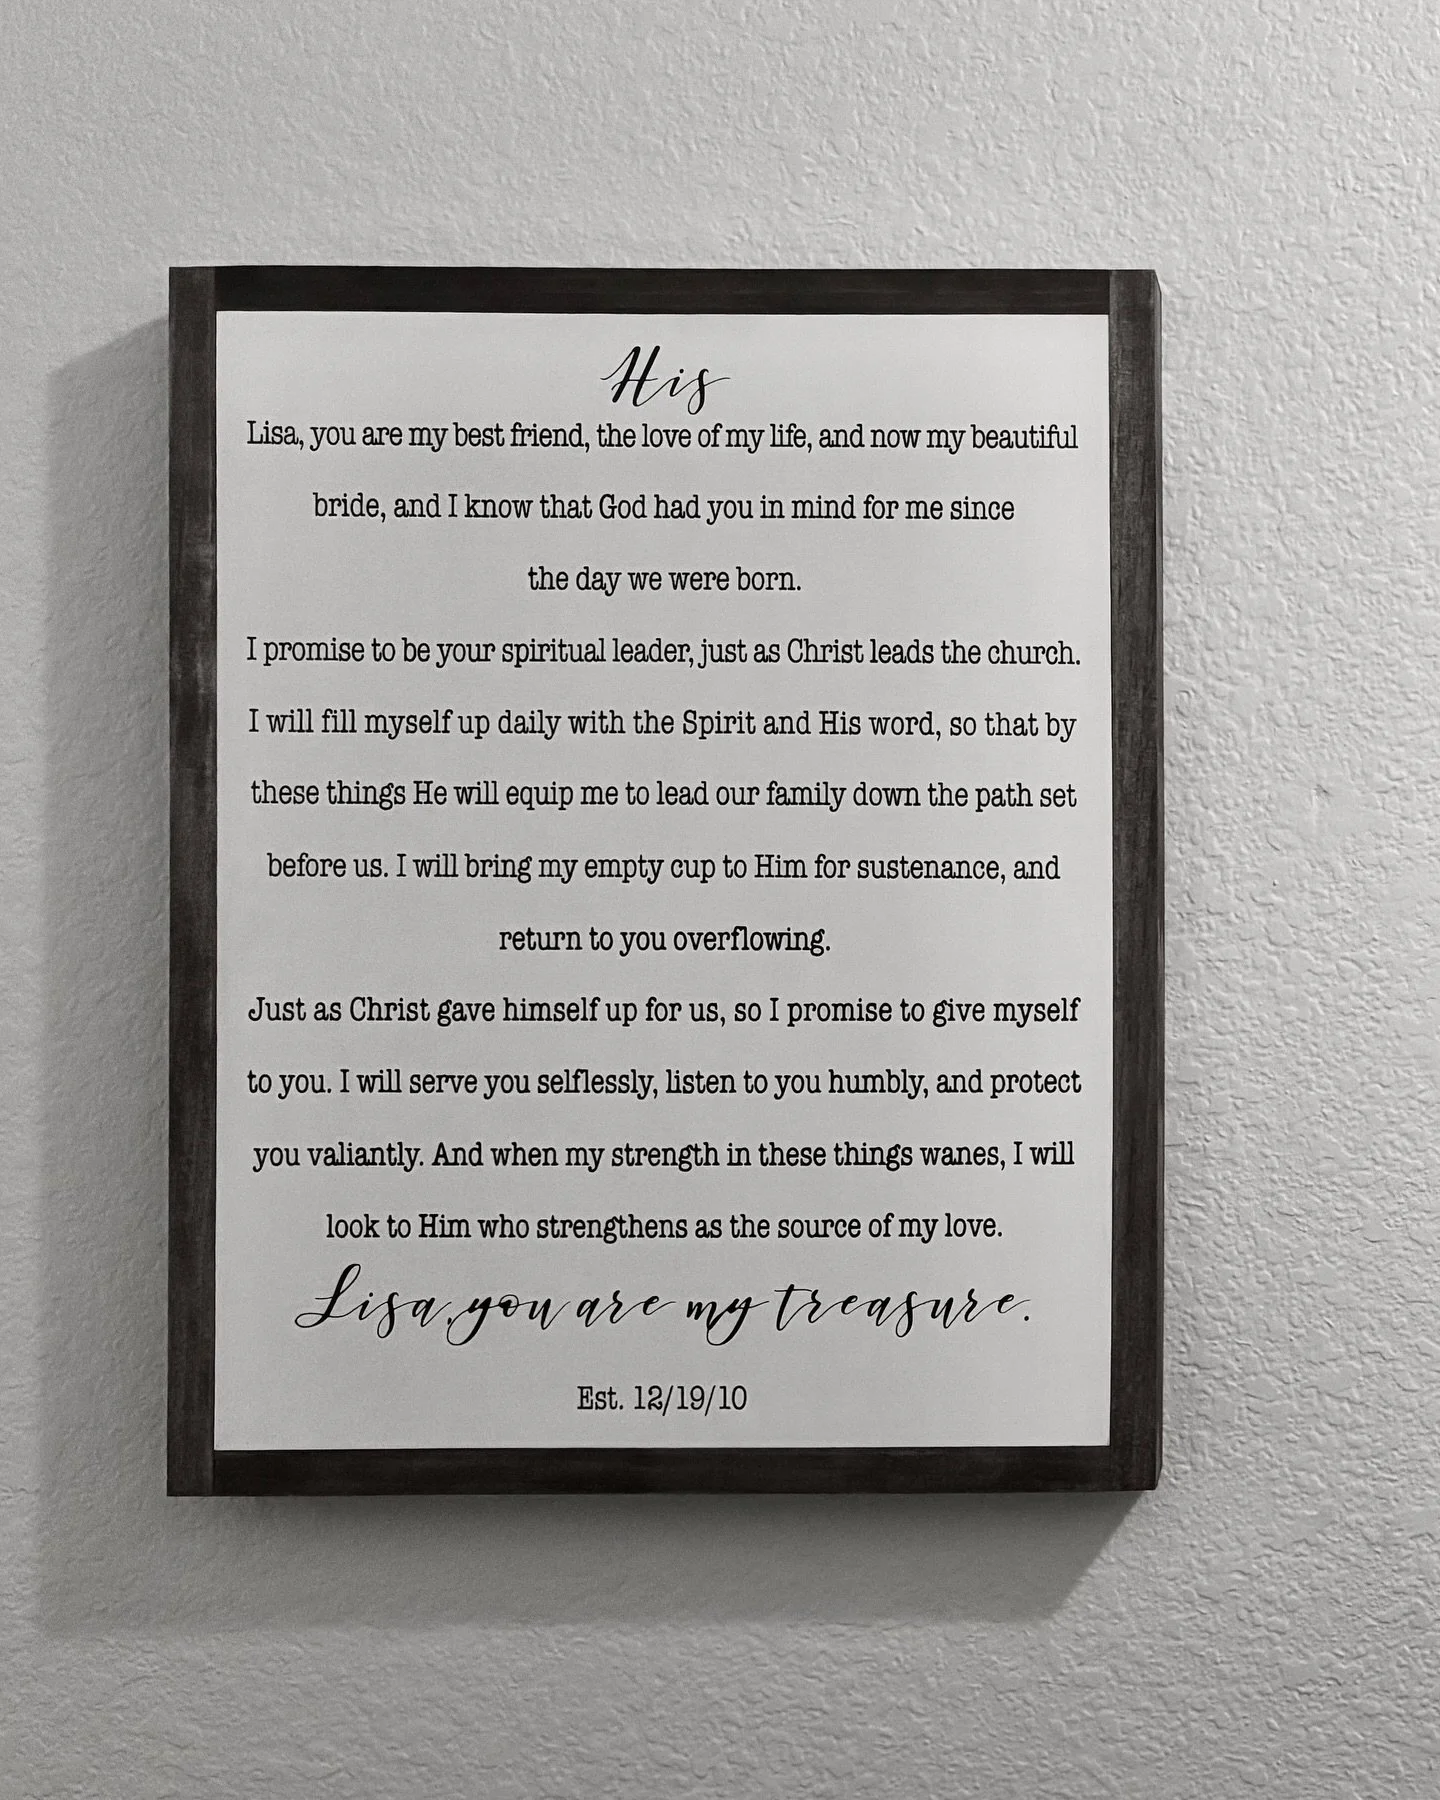 His
Lisa, you are my best friend, the love of my life, and now my beautiful
bride, and I know that God had you in mind for me since
the day we were born.
I promise to be your spiritual leader, just as Christ leads the church.
I will fill myself up daily with the Spirit and His word, so that by
these things He will equip me to lead our family down the path set
before us. I will bring my empty cup to Him for sustenance, and
return to you overflowing.
Just as Christ gave himself up for us, so I promise to give myself
to you. I will serve you selflessly, listen to you humbly, and protect
you valiantly. And when my strength in these things wanes, I will
look to Him who strengthens as the source of my love.
Lisa, you are my treasure.
Est. 12/19/10